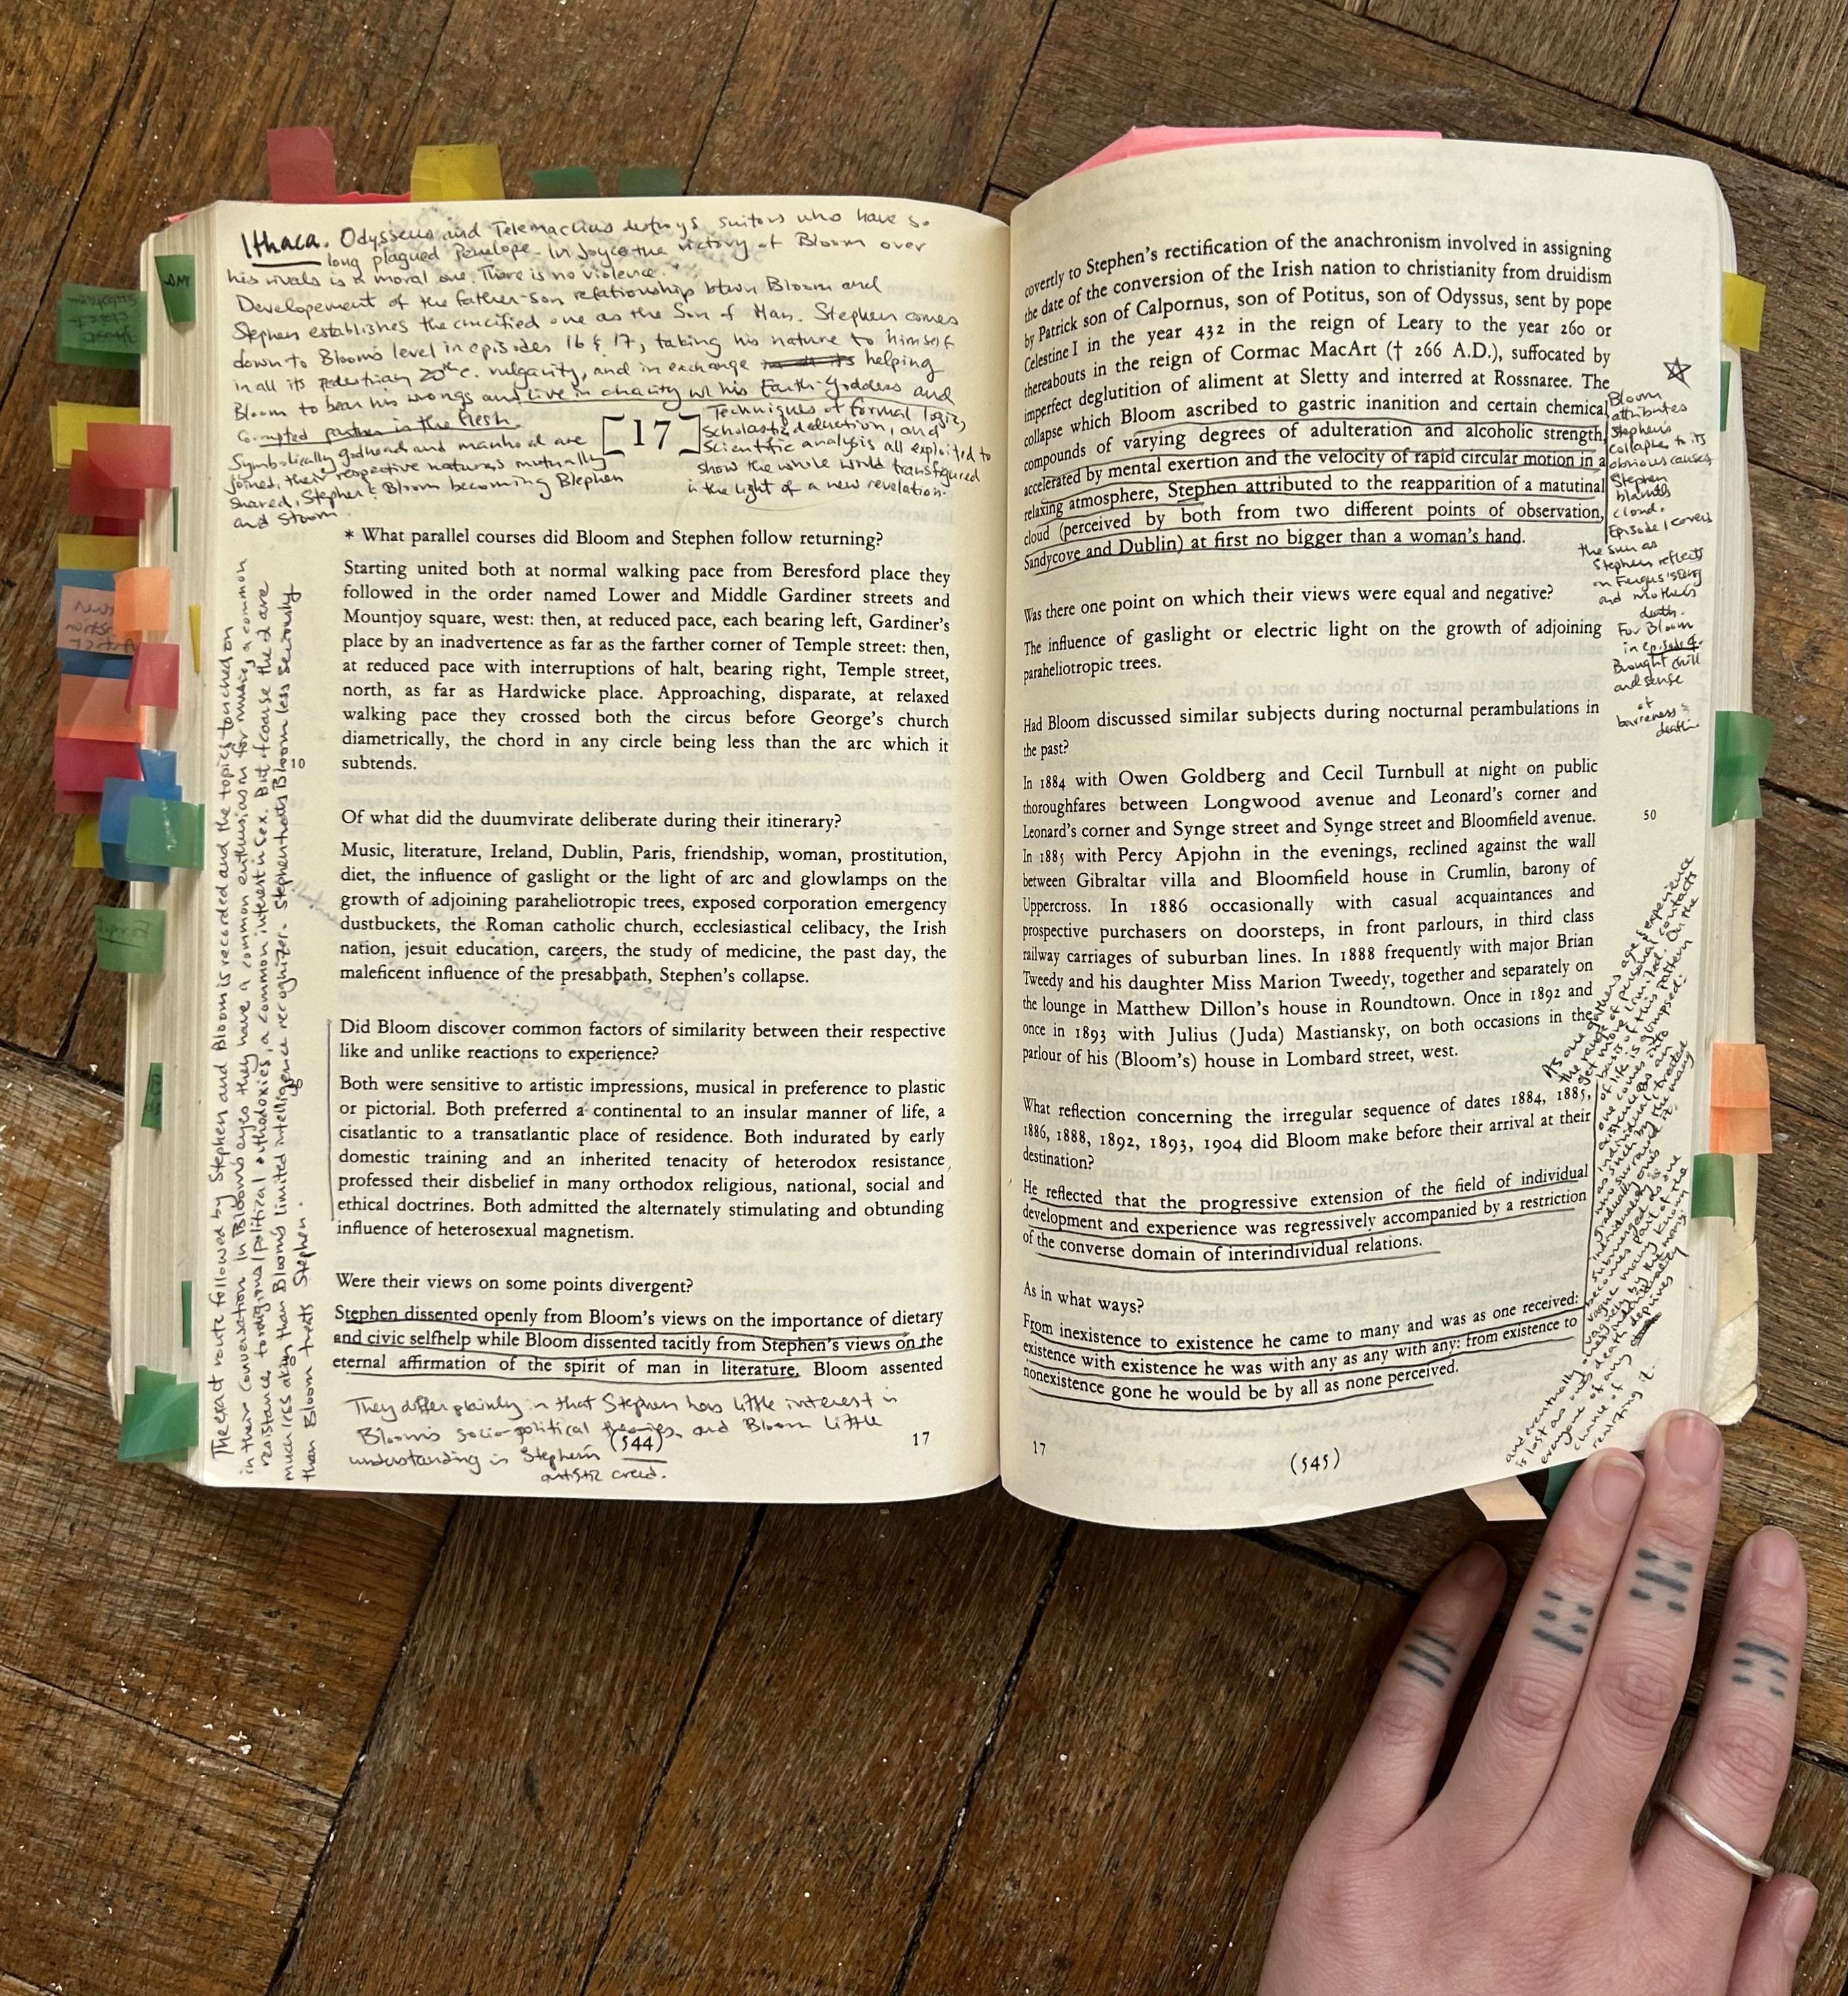 Ithaca. Odysseus and Telemachus destroys suitors who have so
long plagued Penelope. In Joyce the victory of Bloom over
his rivals is a moral one. There is no violence.
Developement of the father-son relationship btwn Bloom and
Stephen establishes the crucified one as the Son of Man. Stephen comes
down to Bloom's level in episodes 16 & 17, taking his nature to himself
in all its pedestrian 20th c. vulgarity, and in exchange helping
Bloom to bear his wrongs and live in charity w/ his Earth-Goddess and
Corrupted partner in the flesh.
Symbolically godhead and manhood are
joined, their respective natures mutually
shared, Stephen & Bloom becoming Blephen
and Stoom.
[17]
Techniques of formal logic,
Scholastic deduction, and
Scientific analysis all exploited to
show the whole world transfigured
in the light of a new revelation.
* What parallel courses did Bloom and Stephen follow returning?
Starting united both at normal walking pace from Beresford place they
followed in the order named Lower and Middle Gardiner streets and
Mountjoy square, west: then, at reduced pace, each bearing left, Gardiner's
place by an inadvertence as far as the farther corner of Temple street: then,
at reduced pace with interruptions of halt, bearing right, Temple street,
north, as far as Hardwicke place. Approaching, disparate, at relaxed
walking pace they crossed both the circus before George's church
diametrically, the chord in any circle being less than the arc which it
10 subtends.
Of what did the duumvirate deliberate during their itinerary?
Music, literature, Ireland, Dublin, Paris, friendship, woman, prostitution,
diet, the influence of gaslight or the light of arc and glowlamps on the
growth of adjoining paraheliotropic trees, exposed corporation emergency
dustbuckets, the Roman catholic church, ecclesiastical celibacy, the Irish
nation, jesuit education, careers, the study of medicine, the past day, the
maleficent influence of the presabbath, Stephen's collapse.
Did Bloom discover common factors of similarity between their respective
like and unlike reactions to experience?
Both were sensitive to artistic impressions, musical in preference to plastic
or pictorial. Both preferred a continental to an insular manner of life, a
cisatlantic to a transatlantic place of residence. Both indurated by early
domestic training and an inherited tenacity of heterodox resistance
professed their disbelief in many orthodox religious, national, social and
ethical doctrines. Both admitted the alternately stimulating and obtunding
influence of heterosexual magnetism.
Were their views on some points divergent?
Stephen dissented openly from Bloom's views on the importance of dietary
and civic selfhelp while Bloom dissented tacitly from Stephen's views on the
eternal affirmation of the spirit of man in literature. Bloom assented
They differ plainly in that Stephen has little interest in
Bloom's socio-political theories, and Bloom little
understanding in Stephen's
artistic creed.
(544)
17
The exact route followed by Stephen and Bloom is recorded and the topics touched on
in their conversation. In Bloom's eyes they have a common enthusiasm for music, a common
resistance to religious/political orthodoxies, a common interest in sex. But of course the 2 are
much less akin than Bloom's limited intelligence recognizes. Stephen treats Bloom less seriously
than Bloom treats Stephen.
covertly to Stephen's rectification of the anachronism involved in assigning
the date of the conversion of the Irish nation to christianity from druidism
by Patrick son of Calpornus, son of Potitus, son of Odyssus, sent by pope
Celestine I in the year 432 in the reign of Leary to the year 260 or
thereabouts in the reign of Cormac MacArt († 266 A.D.), suffocated by
imperfect deglutition of aliment at Sletty and interred at Rossnaree. The
collapse which Bloom ascribed to gastric inanition and certain chemical
compounds of varying degrees of adulteration and alcoholic strength,
accelerated by mental exertion and the velocity of rapid circular motion in a
relaxing atmosphere, Stephen attributed to the reapparition of a matutinal
cloud (perceived by both from two different points of observation,
Sandycove and Dublin) at first no bigger than a woman's hand.
Was there one point on which their views were equal and negative?
The influence of gaslight or electric light on the growth of adjoining
paraheliotropic trees.
Had Bloom discussed similar subjects during nocturnal perambulations in
the past?
In 1884 with Owen Goldberg and Cecil Turnbull at night on public
thoroughfares between Longwood avenue and Leonard's corner and
Leonard's corner and Synge street and Synge street and Bloomfield avenue. 50
In 1885 with Percy Apjohn in the evenings, reclined against the wall
between Gibraltar villa and Bloomfield house in Crumlin, barony of
Uppercross. In 1886 occasionally with casual acquaintances and
prospective purchasers on doorsteps, in front parlours, in third class
railway carriages of suburban lines. In 1888 frequently with major Brian
Tweedy and his daughter Miss Marion Tweedy, together and separately on
the lounge in Matthew Dillon's house in Roundtown. Once in 1892 and
once in 1893 with Julius (Juda) Mastiansky, on both occasions in the
parlour of his (Bloom's) house in Lombard street, west.
What reflection concerning the irregular sequence of dates 1884, 1885,
1886, 1888, 1892, 1893, 1904 did Bloom make before their arrival at their
destination?
He reflected that the progressive extension of the field of individual
development and experience was regressively accompanied by a restriction
of the converse domain of interindividual relations.
As in what ways?
From inexistence to existence he came to many and was as one received:
existence with existence he was with any as any with any: from existence to
nonexistence gone he would be by all as none perceived.
17
(545)
Bloom
attributes
Stephen's
collapse to its
obvious causes
Stephen
blames
cloud.
Episode 1 covers
the sun as
Stephen reflects
on Fergus's song
and mother's
death.
For Bloom
in episode 4.
Brought chill
and sense
of
barreness &
death.
As one gathers age & experience
the range of personal contacts
get more limited. On the
basis of this pattern
of life is glimpsed:
one comes into
existence as an
individual treated
as such by the many
who surround it.
gradually one's
individuality is
submerged as one
becomes part of the
vague many known
vaguely by that many
and eventually one's individuality
is lost as death deprives
everyone of any
chance of
realizing it.